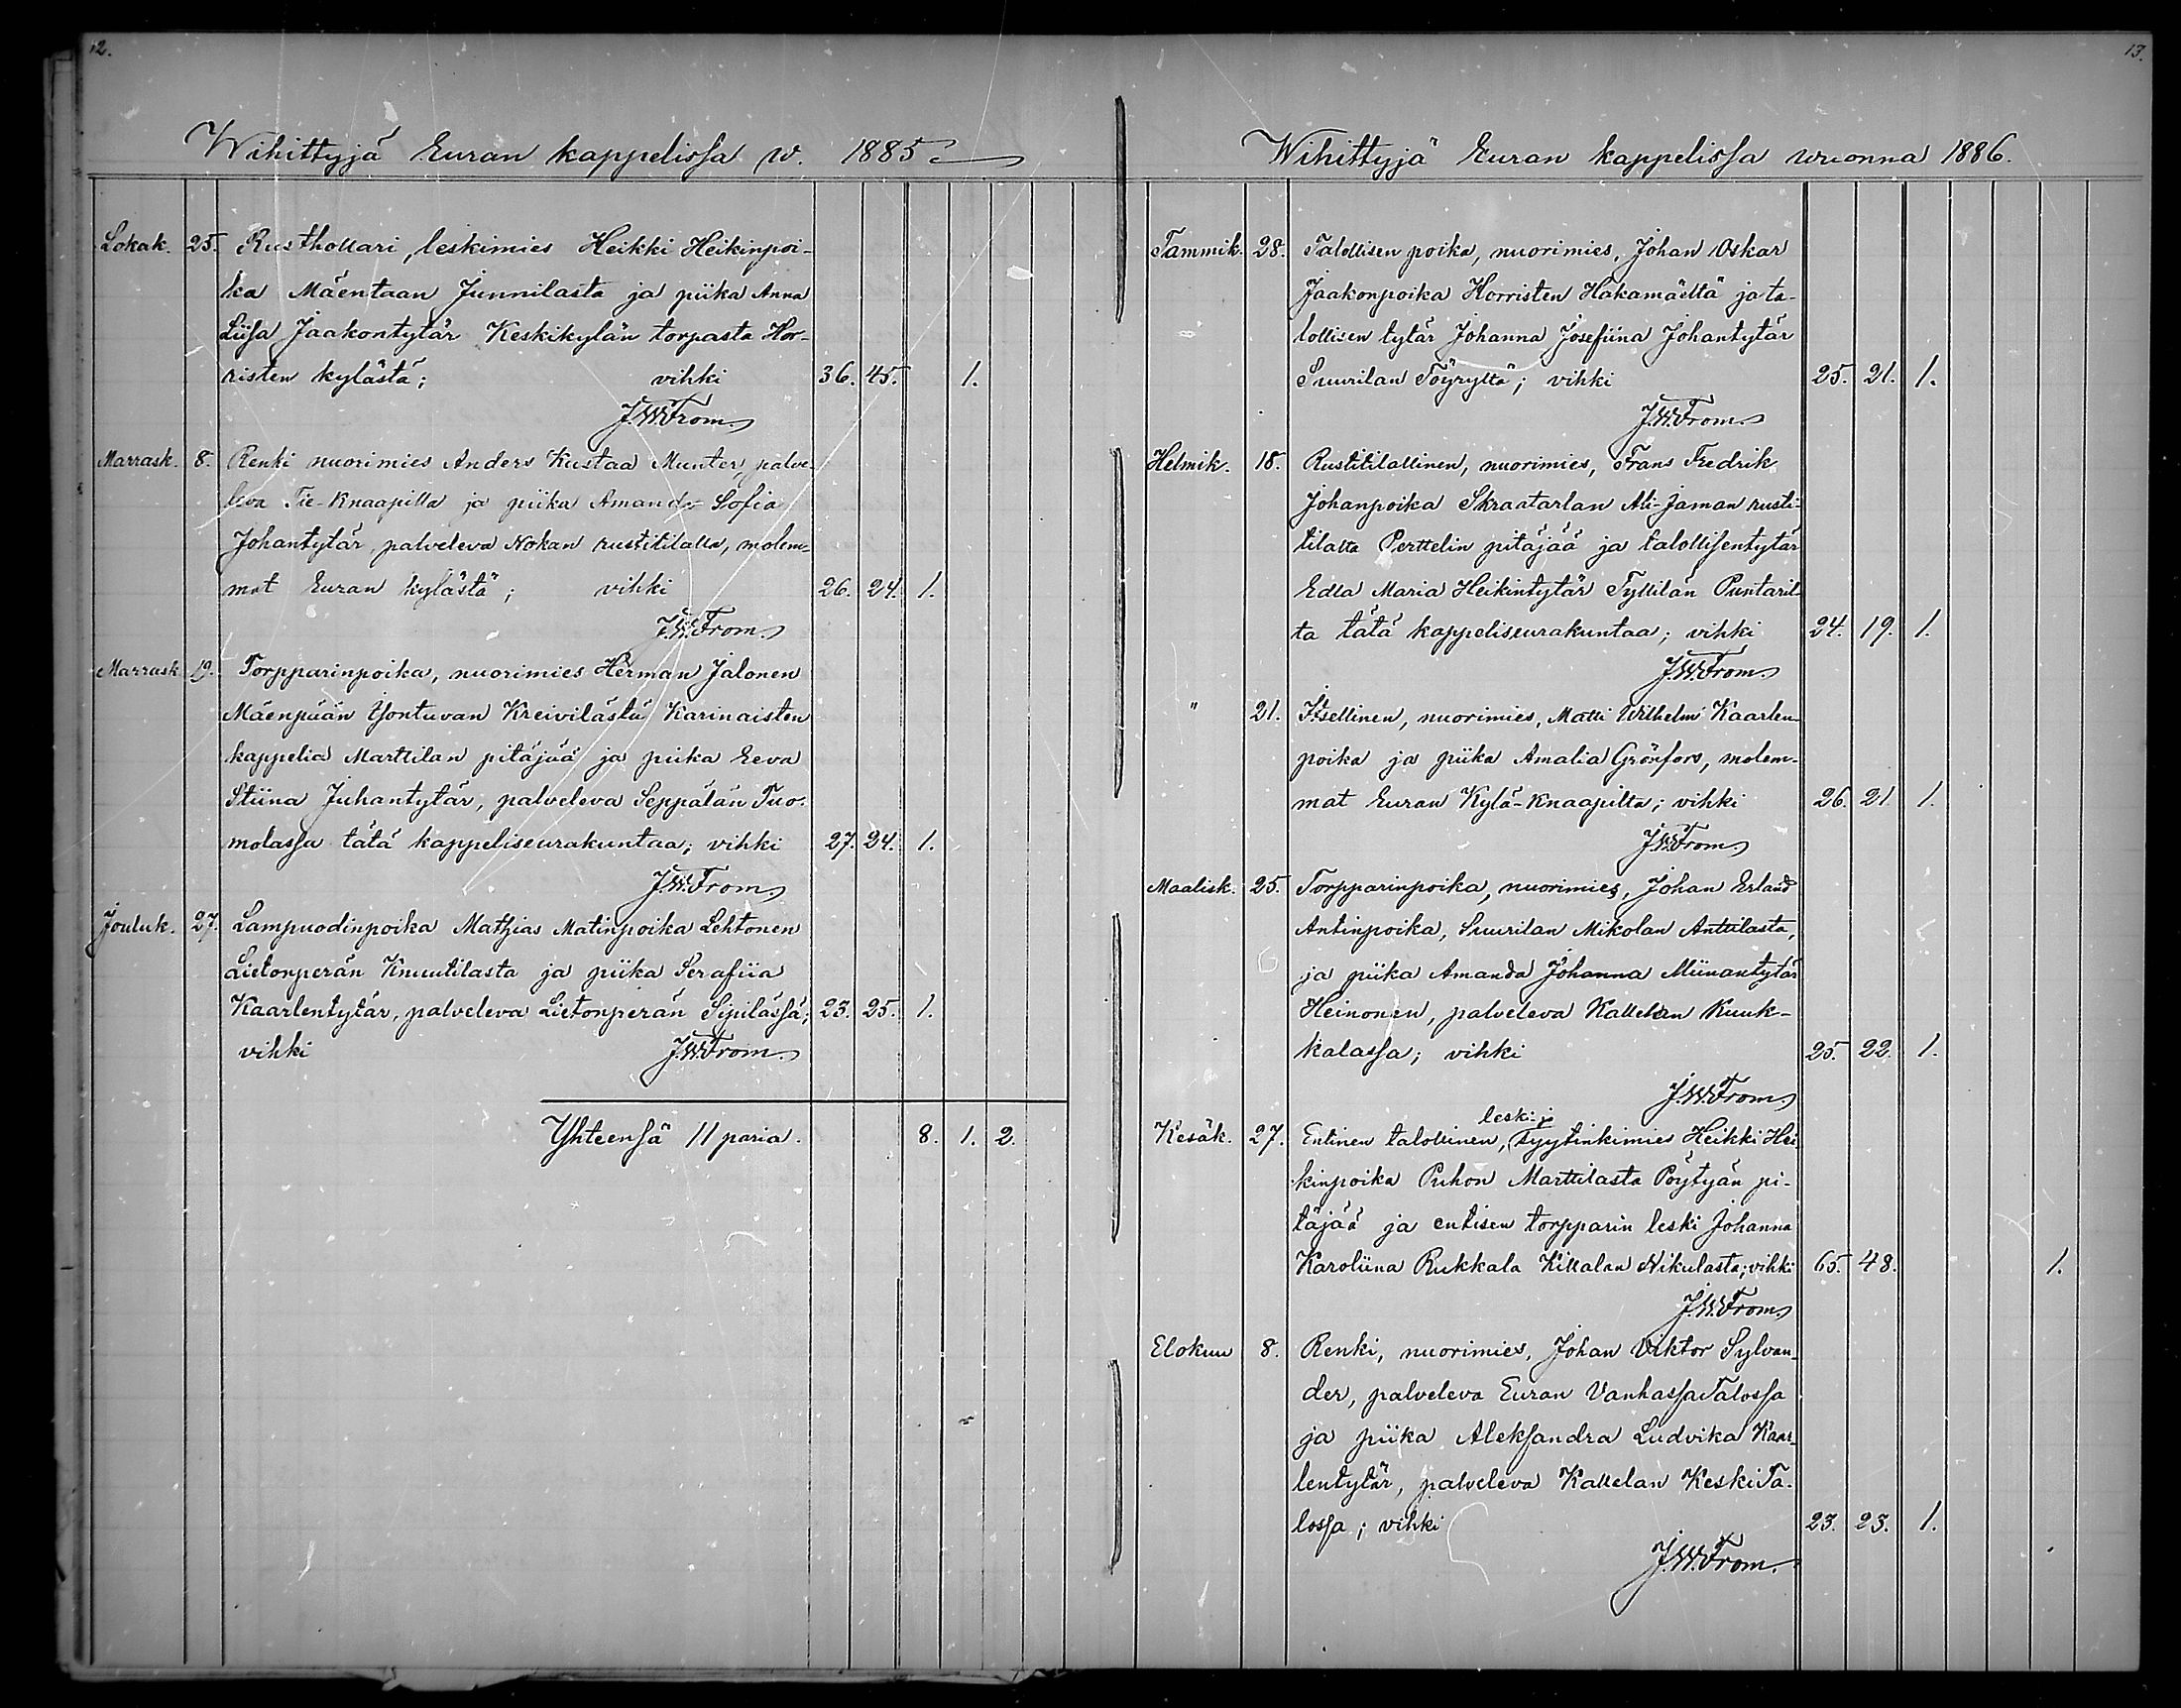 12.
Wihittyjä Euran kappelissa w. 1885
Lokak. 25. Rusthollari, leskimies Heikki Heikinpoi-
ka Mäentaan Junnilasta ja piika Anna
Liisa Jaakontytär Keskikylän torpasta Hor-
risten kylästä; vihki 36. 45. 1.
J.W.From.
Marrask. 8. Renki nuorimies Anders Kustaa Munter, palve-
leva Tie-Knaapilla ja piika Amanda Sofia
Johantytär, palveleva Nokan rustitilalla, molem-
mat Euran kylästä; vihki 26. 24. 1.
J.W.From.
Marrask. 19. Torpparinpoika, nuorimies Herman Jalonen
Mäenpään Yontuvan Kreivilästä Karinaisten
kappelia Marttilan pitäjää ja piika Eeva
Stiina Juhantytär, palveleva Seppälän Tuo-
molassa tätä kappeliseurakuntaa; vihki 27. 24. 1.
J.W.From.
Jouluk. 27. Lampuodinpoika Mathias Matinpoika Lehtonen
Lietonperän Knuutilasta ja piika Serafiia
Kaarlentytär, palveleva Lietonperän Sipilässä; 23. 25. 1.
vihki J.W.From.
Yhteensä 11 paria. 8. 1. 2.
13.
Wihittyjä Euran kappelissa wuonna 1886.
Tammik. 28. Talollisen poika, nuorimies, Johan Oskar
Jaakonpoika Horristen Hakamäeltä ja ta-
lollisen tytär Johanna Josefiina Johantytär
Suurilan Töyryltä; vihki 25. 21. 1.
J.W.From.
Helmik. 18. Rustitilallinen, nuorimies, Frans Fredrik
Johanpoika Skraatarlan Ali-Jaman rusti-
tilalta Perttelin pitäjää ja talollisentytär
Edla Maria Heikintytär Tyllilän Puntaril-
ta tätä kappeliseurakuntaa; vihki 24. 19. 1.
J.W.From.
" 21. Itsellinen, nuorimies, Matti Wilhelm Kaarlen-
poika ja piika Amalia Grönfors, molem-
mat Euran Kylä-Knaapilta; vihki 26. 21. 1.
J.W.From.
Maalisk. 25. Torpparinpoika, nuorimies, Johan Erland
Antinpoika, Suurilan Mikolan Anttilasta,
ja piika Amanda Johanna Miinantytär
Heinonen, palveleva Kallelan Kuuk-
kalassa; vihki 25. 22. 1.
J.W.From.
leski- ja
Kesäk. 27. Entinen talollinen, syytinkimies Heikki Hei-
kinpoika Puhon Marttilasta Pöytyän pi-
täjää ja entisen torpparin leski Johanna
Karoliina Rukkala Killalan Nikulasta; vihki 65. 48. 1.
J.W.From.
Elokuu 8. Renki, nuorimies, Johan Viktor Sylvan-
der, palveleva Euran VanhassaTalossa
ja piika Aleksandra Ludvika Kaar-
lentytär, palveleva Kallelan KeskiTa-
lossa; vihki 23. 23. 1.
J.W.From.